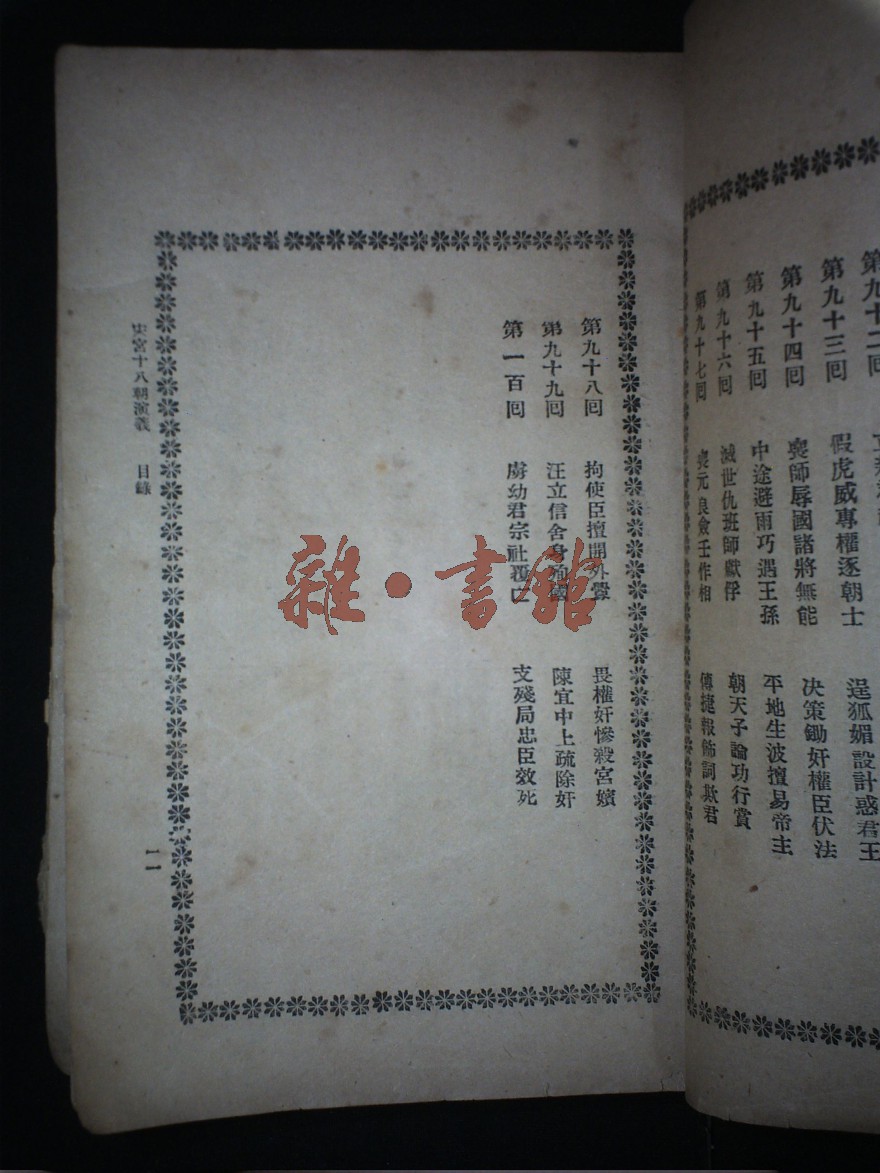 第九十三回 假虎威專權逐朝士 逞狐媚設計惑君王
第九十四回 喪師辱國諸將無能 決策鋤奸權臣伏法
第九十五回 中途避雨巧遇王孫 平地生波擅易帝主
第九十六回 滅世仇班師獻俘 朝天子論功行賞
第九十七回 喪元良僉壬作相 傳捷報飾詞欺君
第九十八回 拘使臣擅開外釁 畏權奸慘殺宮嬪
第九十九回 汪立信舍身殉國 陳宜中上疏除奸
第一百回 虜幼君宗社覆亡 支殘局忠臣效死
宋宮十八朝演義 目錄
一一
雜·書館